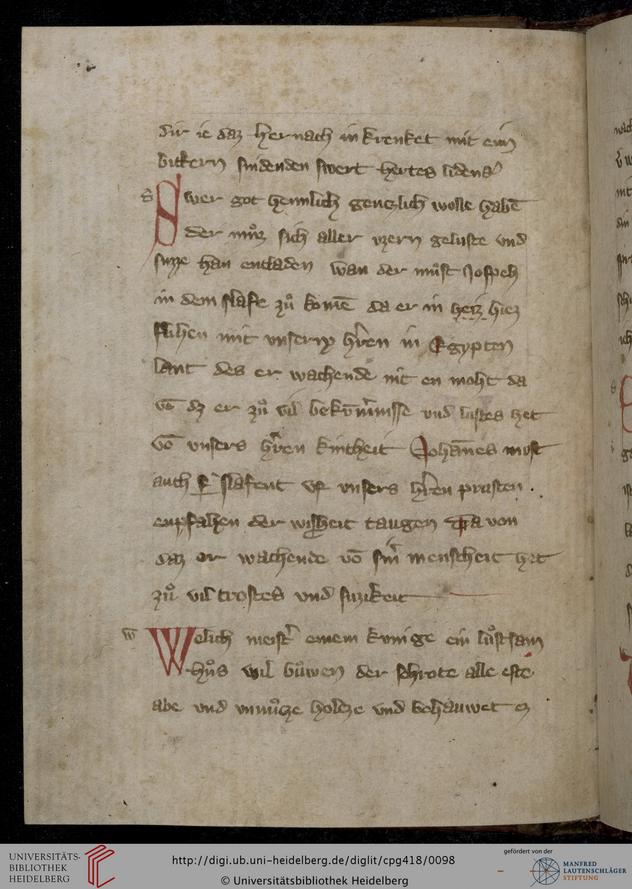 dir ie daz hernach in krenket mit eim
bittern sindenden swert hertes lidens
Swer got heimlich genczlich wolle habē
der můz sich aller uzern geluste vnd
suzze han entladen wan der můst Joseph
in dem slafe zů komē da er in heiz hiez
flihen mit vnserm hrēn in Egypten
lant des er wachende nit en moht da
vō dz er zů vil bekūmnisse vnd lustes het
vō vnsers hrēn kintheit Johānes must
auch slafent vf vnsers hrēn prusten .
enpfahen der wisheit taugen Da von
daz er wachende vō sinr menscheit het
zů vil trostes vnd suzikeit
Welich meistr einem kunige ein lůstsam
hůs wil bůwen der schrote alle este
abe vnd vnnůcze holcze vnd behauwet
UNIVERSITÄTS-
BIBLIOTHEK
HEIDELBERG
http://digi.ub.uni-heidelberg.de/diglit/cpg418/0098
© Universitätsbibliothek Heidelberg
gefördert von der
MANFRED
LAUTENSCHLÄGER
STIFTUNG